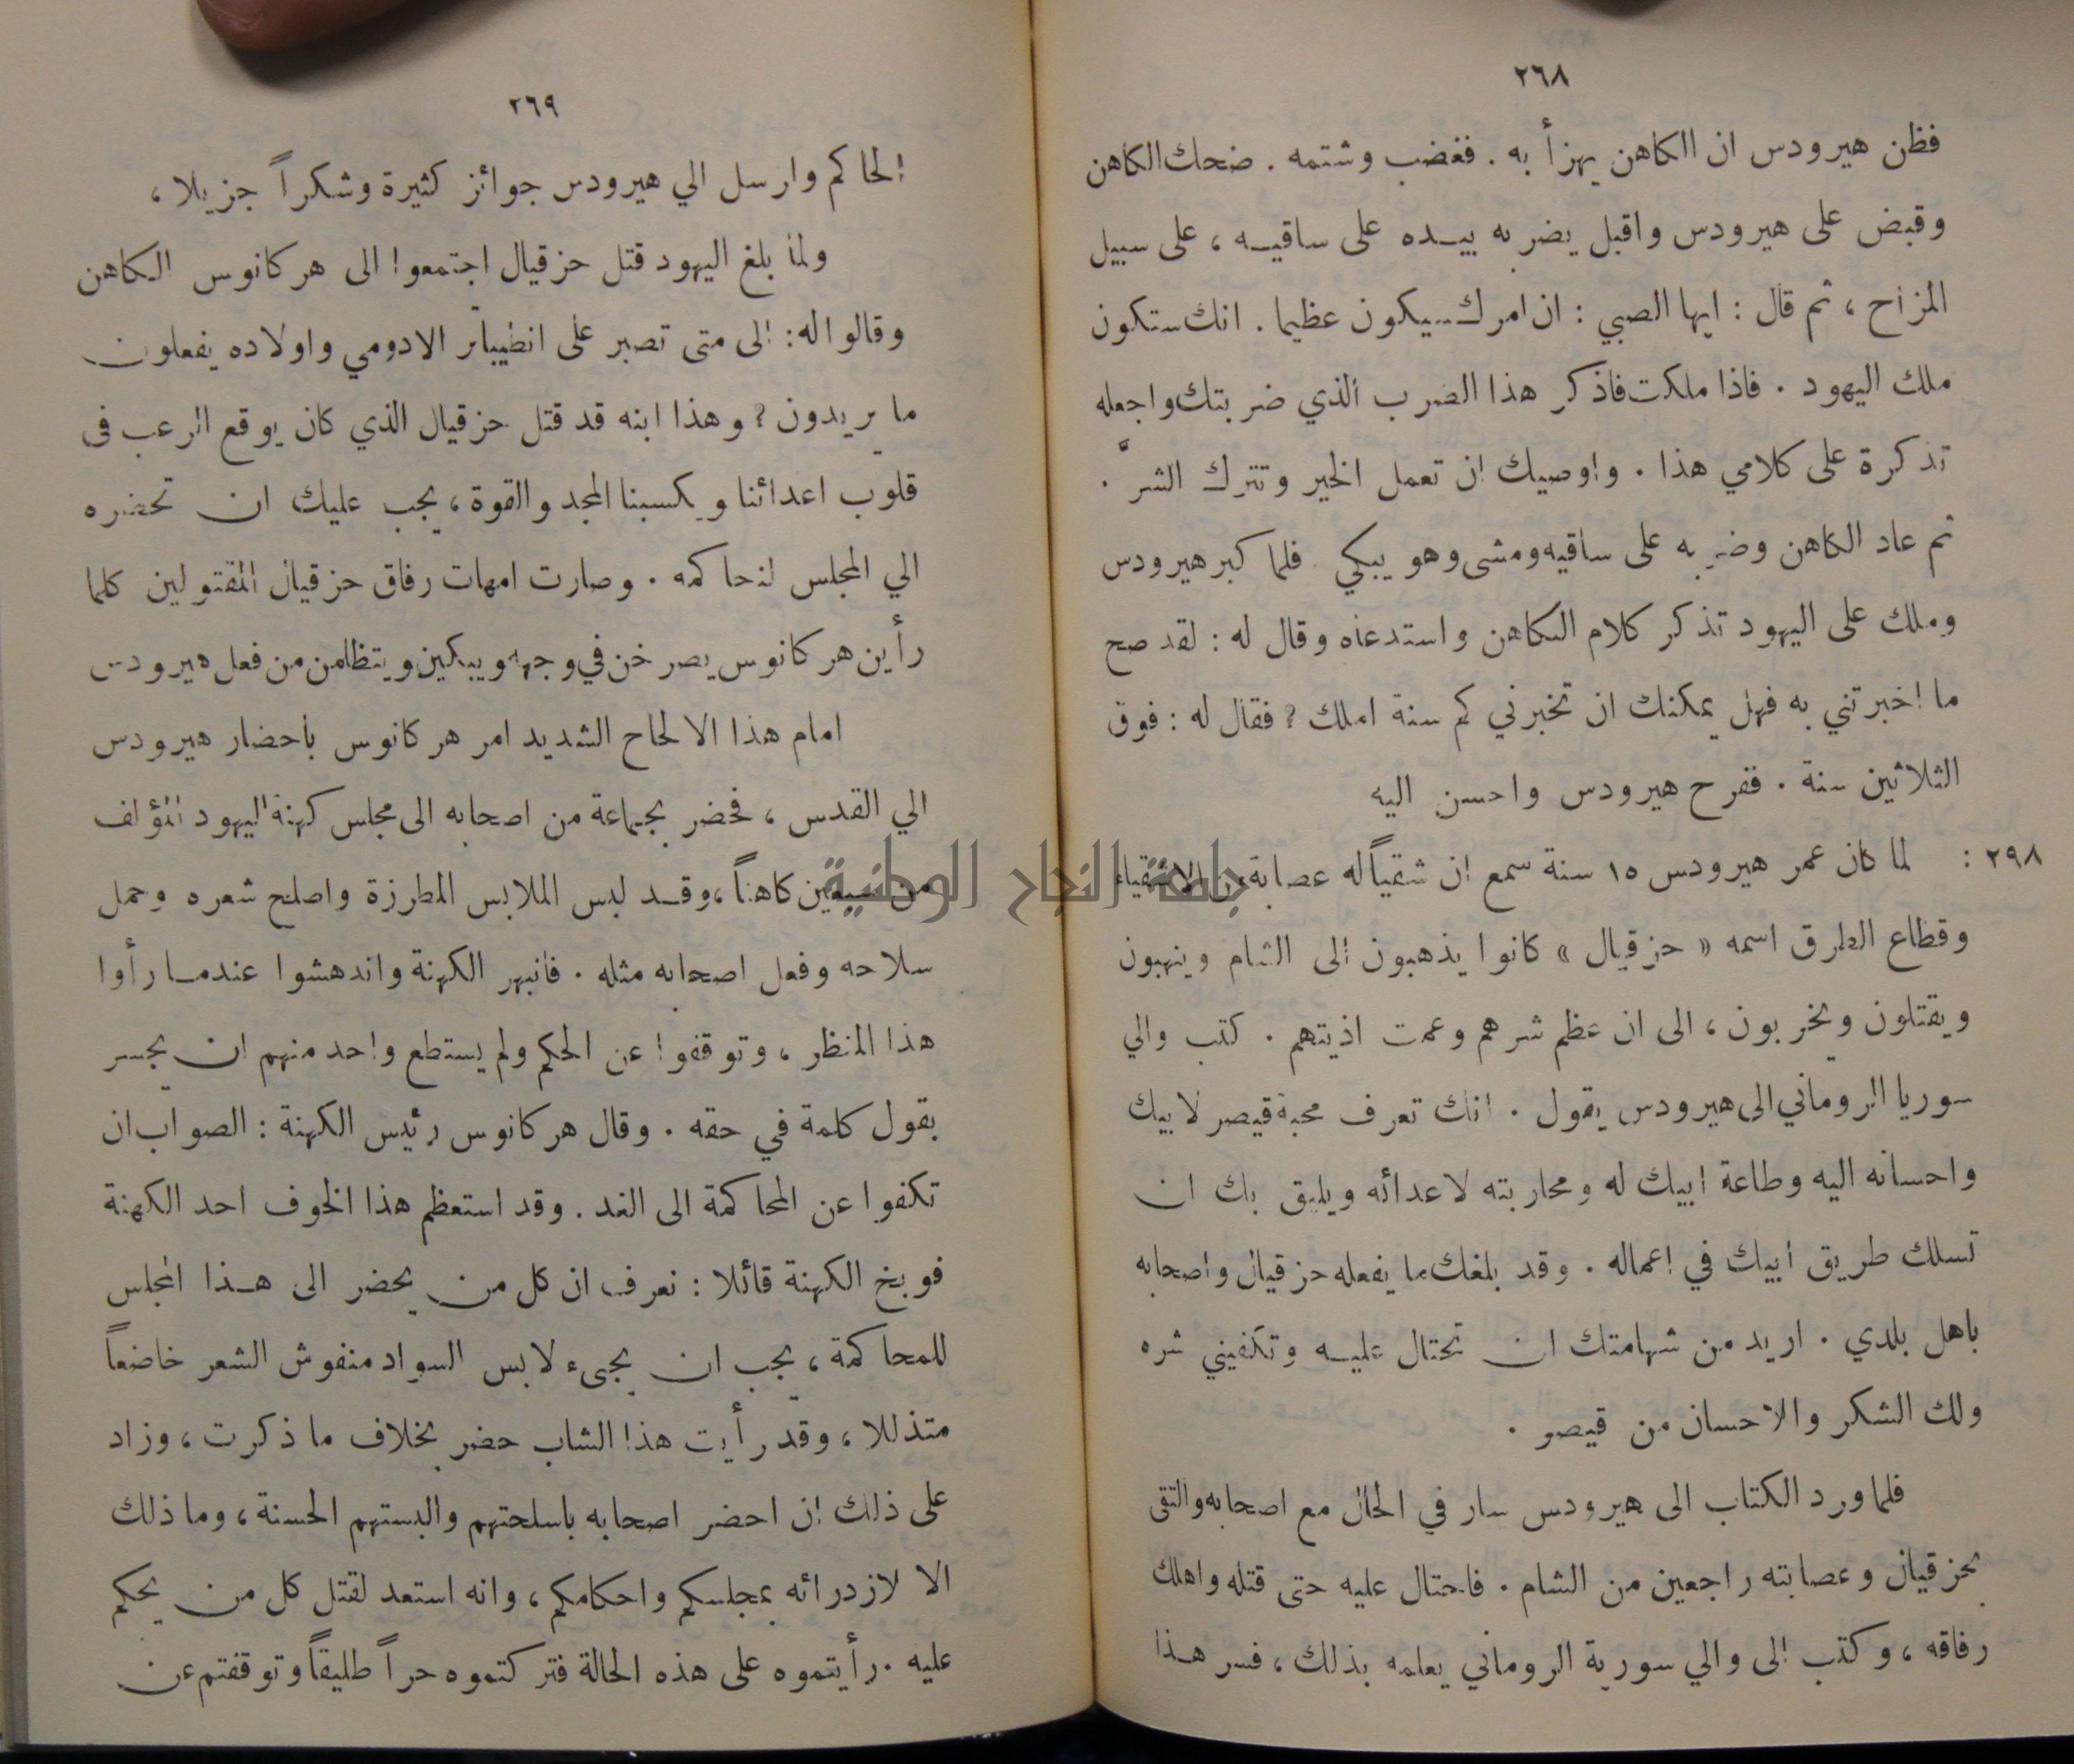 ٢٦٨
فظن هيرودس ان االكاهن يهزأ به . فغضب وشتمه . ضحك الكاهن
وقبض على هيرودس واقبل يضربه بيـده على ساقيـه ، على سبيل
المزاح ، ثم قال : ايها الصبي : ان امرك سيكون عظيما . انك ستكون
ملك اليهود . فاذا ملكت فاذكر هذا الضرب الذي ضربتك واجعله
تذكرة على كلامي هذا . واوصيك ان تعمل الخير وتترك الشرّ .
ثم عاد الكاهن وضربه على ساقيه ومشى وهو يبكي . فلما كبر هيرودس
وملك على اليهود تذكر كلام الكاهن واستدعاه وقال له : لقد صح
ما اخبرتني به فهل يمكنك ان تخبرني كم سنة املك ? فقال له : فوق
الثلاثين سنة . ففرح هيرودس واحسن اليه
٢٩٨ : لما كان عمر هيرودس ١٥ سنة سمع ان شقياً له عصابة من الاشقياء
وقطاع الطرق اسمه « حزقيال » كانوا يذهبون الى الشام وينهبون
ويقتلون ويخربون ، الى ان عظم شرهم وعمت اذيتهم . كتب والي
سوريا الروماني الى هيرودس يقول . انك تعرف محبة قيصر لابيك
واحسانه اليه وطاعة ابيك له ومحاربته لاعدائه ويليق بك ان
تسلك طريق ابيك في اعماله . وقد بلغك ما يفعله حزقيال واصحابه
باهل بلدي . اريد من شهامتك ان تحتال عليـه وتكفيني شره
ولك الشكر والاحسان من قيصر .
فلما ورد الكتاب الى هيرودس سار في الحال مع اصحابه والتقى
بحزقيال وعصابته راجعين من الشام . فاحتال عليه حتى قتله واهلك
رفاقه ، وكتب الى والي سورية الروماني يعلمه بذلك ، فسر هـذا
٢٦٩
الحاكم وارسل الي هيرودس جوائز كثيرة وشكراً جزيلا ،
ولما بلغ اليهود قتل حزقيال اجتمعوا الى هركانوس الكاهن
وقالوا له : الى متى تصبر على انطيباتر الادومي واولاده يفعلون
ما يريدون ? وهذا ابنه قد قتل حزقيال الذي كان يوقع الرعب في
قلوب اعدائنا ويكسبنا المجد والقوة ، يجب عليك ان تحضره
الي المجلس لنحاكمه . وصارت امهات رفاق حزقيال المقتولين كلما
رأين هركانوس يصرخن في وجهه ويبكين ويتظلمن من فعل هيرودس
امام هذا الالحاح الشديد امر هركانوس باحضار هيرودس
الي القدس ، فحضر بجماعة من اصحابه الى مجلس كهنة اليهود المؤلف
من سبعين كاهناً ، وقـد لبس الملابس المطرزة واصلح شعره وحمل
سلاحه وفعل اصحابه مثله . فانبهر الكهنة واندهشوا عندمـا رأوا
هذا المنظر ، وتوقفوا عن الحكم ولم يستطع واحد منهم ان يجسر
بقول كلمة في حقه . وقال هركانوس رئيس الكهنة : الصواب ان
تكفوا عن المحاكمة الى الغد . وقد استعظم هذا الخوف احد الكهنة
فوبخ الكهنة قائلا : نعرف ان كل من يحضر الى هـذا المجلس
للمحاكمة ، يجب ان يجيء لابس السواد منفوش الشعر خاضعاً
متذللا ، وقد رأيت هذا الشاب حضر بخلاف ما ذكرت ، وزاد
على ذلك ان احضر اصحابه باسلحتهم والبستهم الحسنة ، وما ذلك
الا لازدرائه بمجلسكم واحكامكم ، وانه استعد لقتل كل من يحكم
عليه . رأيتموه على هذه الحالة فتركتموه حراً طليقاً وتوقفتم عن
جامعة النجاح الوطنية